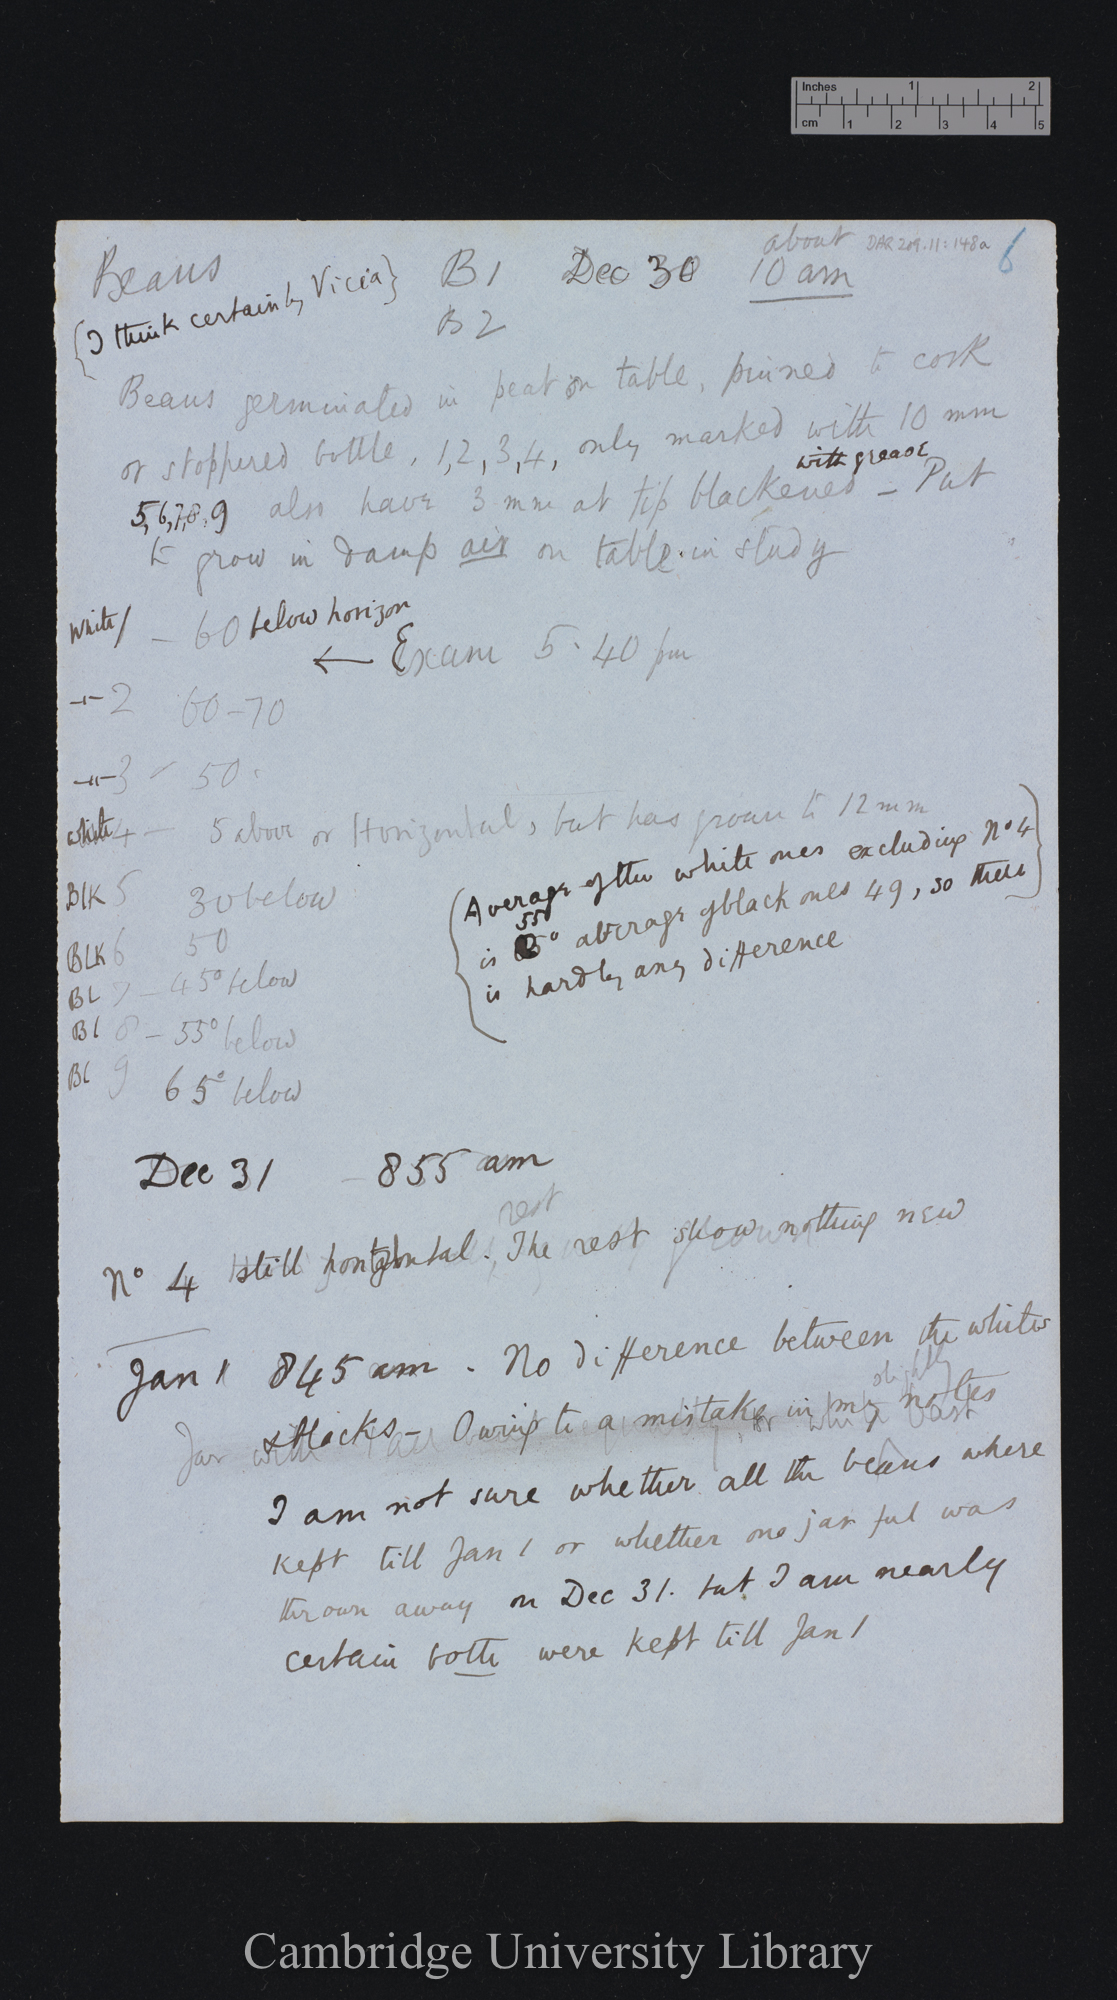 Inches 1 2
cm 1 2 3 4 5
about DAR 209.11:148a 6
Beans B1 Dec 30 10 am
{I think certainly Vicia} B2
Beans germinated in peat on table, pinned to cork
or stoppered bottle, 1,2,3,4, only marked with 10 mm
with grease
5,6,7,8,9 also have 3 mm at tip blackened – Put
to grow in damp air on table in study
White 1 – 60 below horizon
← Exam 5.40 pm
–"– 2 60–70
–"– 3 – 50.
white 4 – 5 above or Horizontal, but has grown to 12 mm
(Average of the white ones excluding No 4
Blk 5 30 below
55
is ° average of black ones 49, so there
Blk 6 50
is hardly any difference
Bl 7 – 45° below
Bl 8 – 55° below
Bl 9 65° below
Dec 31 – 855 am
rest
No 4 still horizontal. The rest show nothing new
Jan 1 845 am. No difference between the whites
slightly
& blacks – Owing to a mistake in my notes
I am not sure whether all the beans where
kept till Jan 1 or whether one jar ful was
thrown away on Dec 31. but I am nearly
certain both were kept till Jan 1
Cambridge University Library